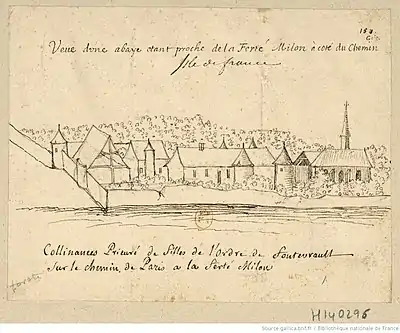 154.
Veue d'vne abaye etant proche de la Ferté Milon à costé du Chemin
Isle de france
Collinances Prieuré de filles de l'ordre de Fontevrault
Sur le chemin de Paris a la Ferté Milon
H140296
Source gallica.bnf.fr / Bibliothèque nationale de France